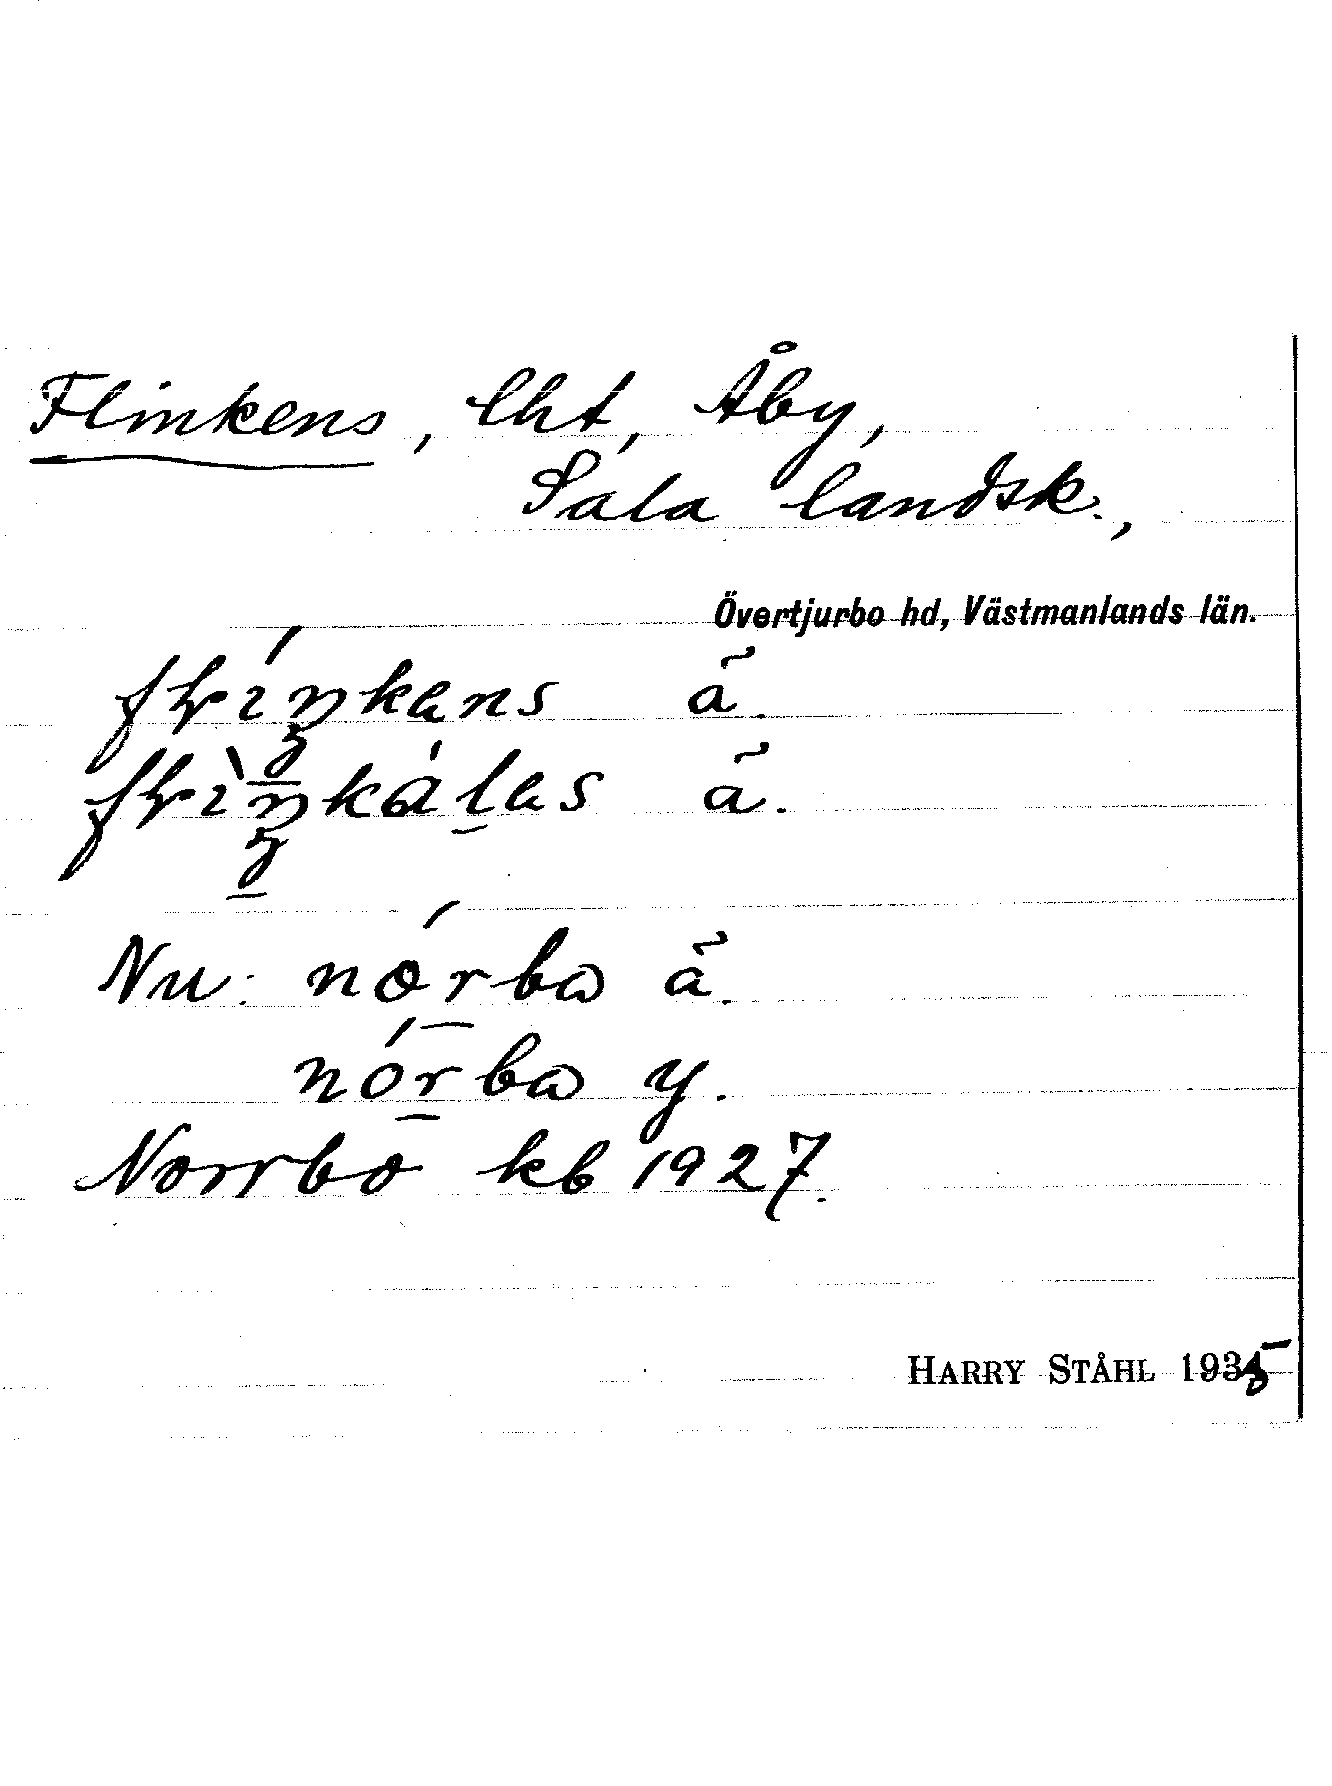 Flinkens, lht, Åby,
Sala landsk.,
Övertjurbo hd, Västmanlands län.
ã.
ã.
Nu: nórba ã.
nór̲ba y.
Norrbo kb 1927.
HARRY STÅHL 1935